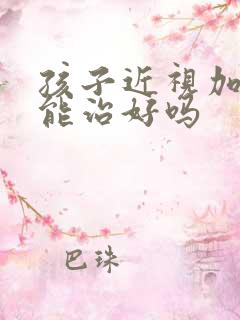 孩子近視加
能治好吗
巴珠